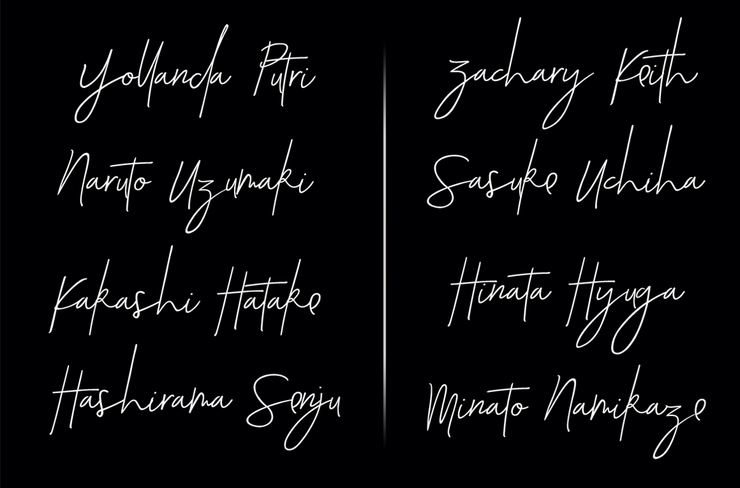 Yollanda Putri
Naruto Uzumaki
Kakashi Hatake
Hashirama Senju
Zachary Keith
Sasuke Uchiha
Hinata Hyuga
Minato Namikaze